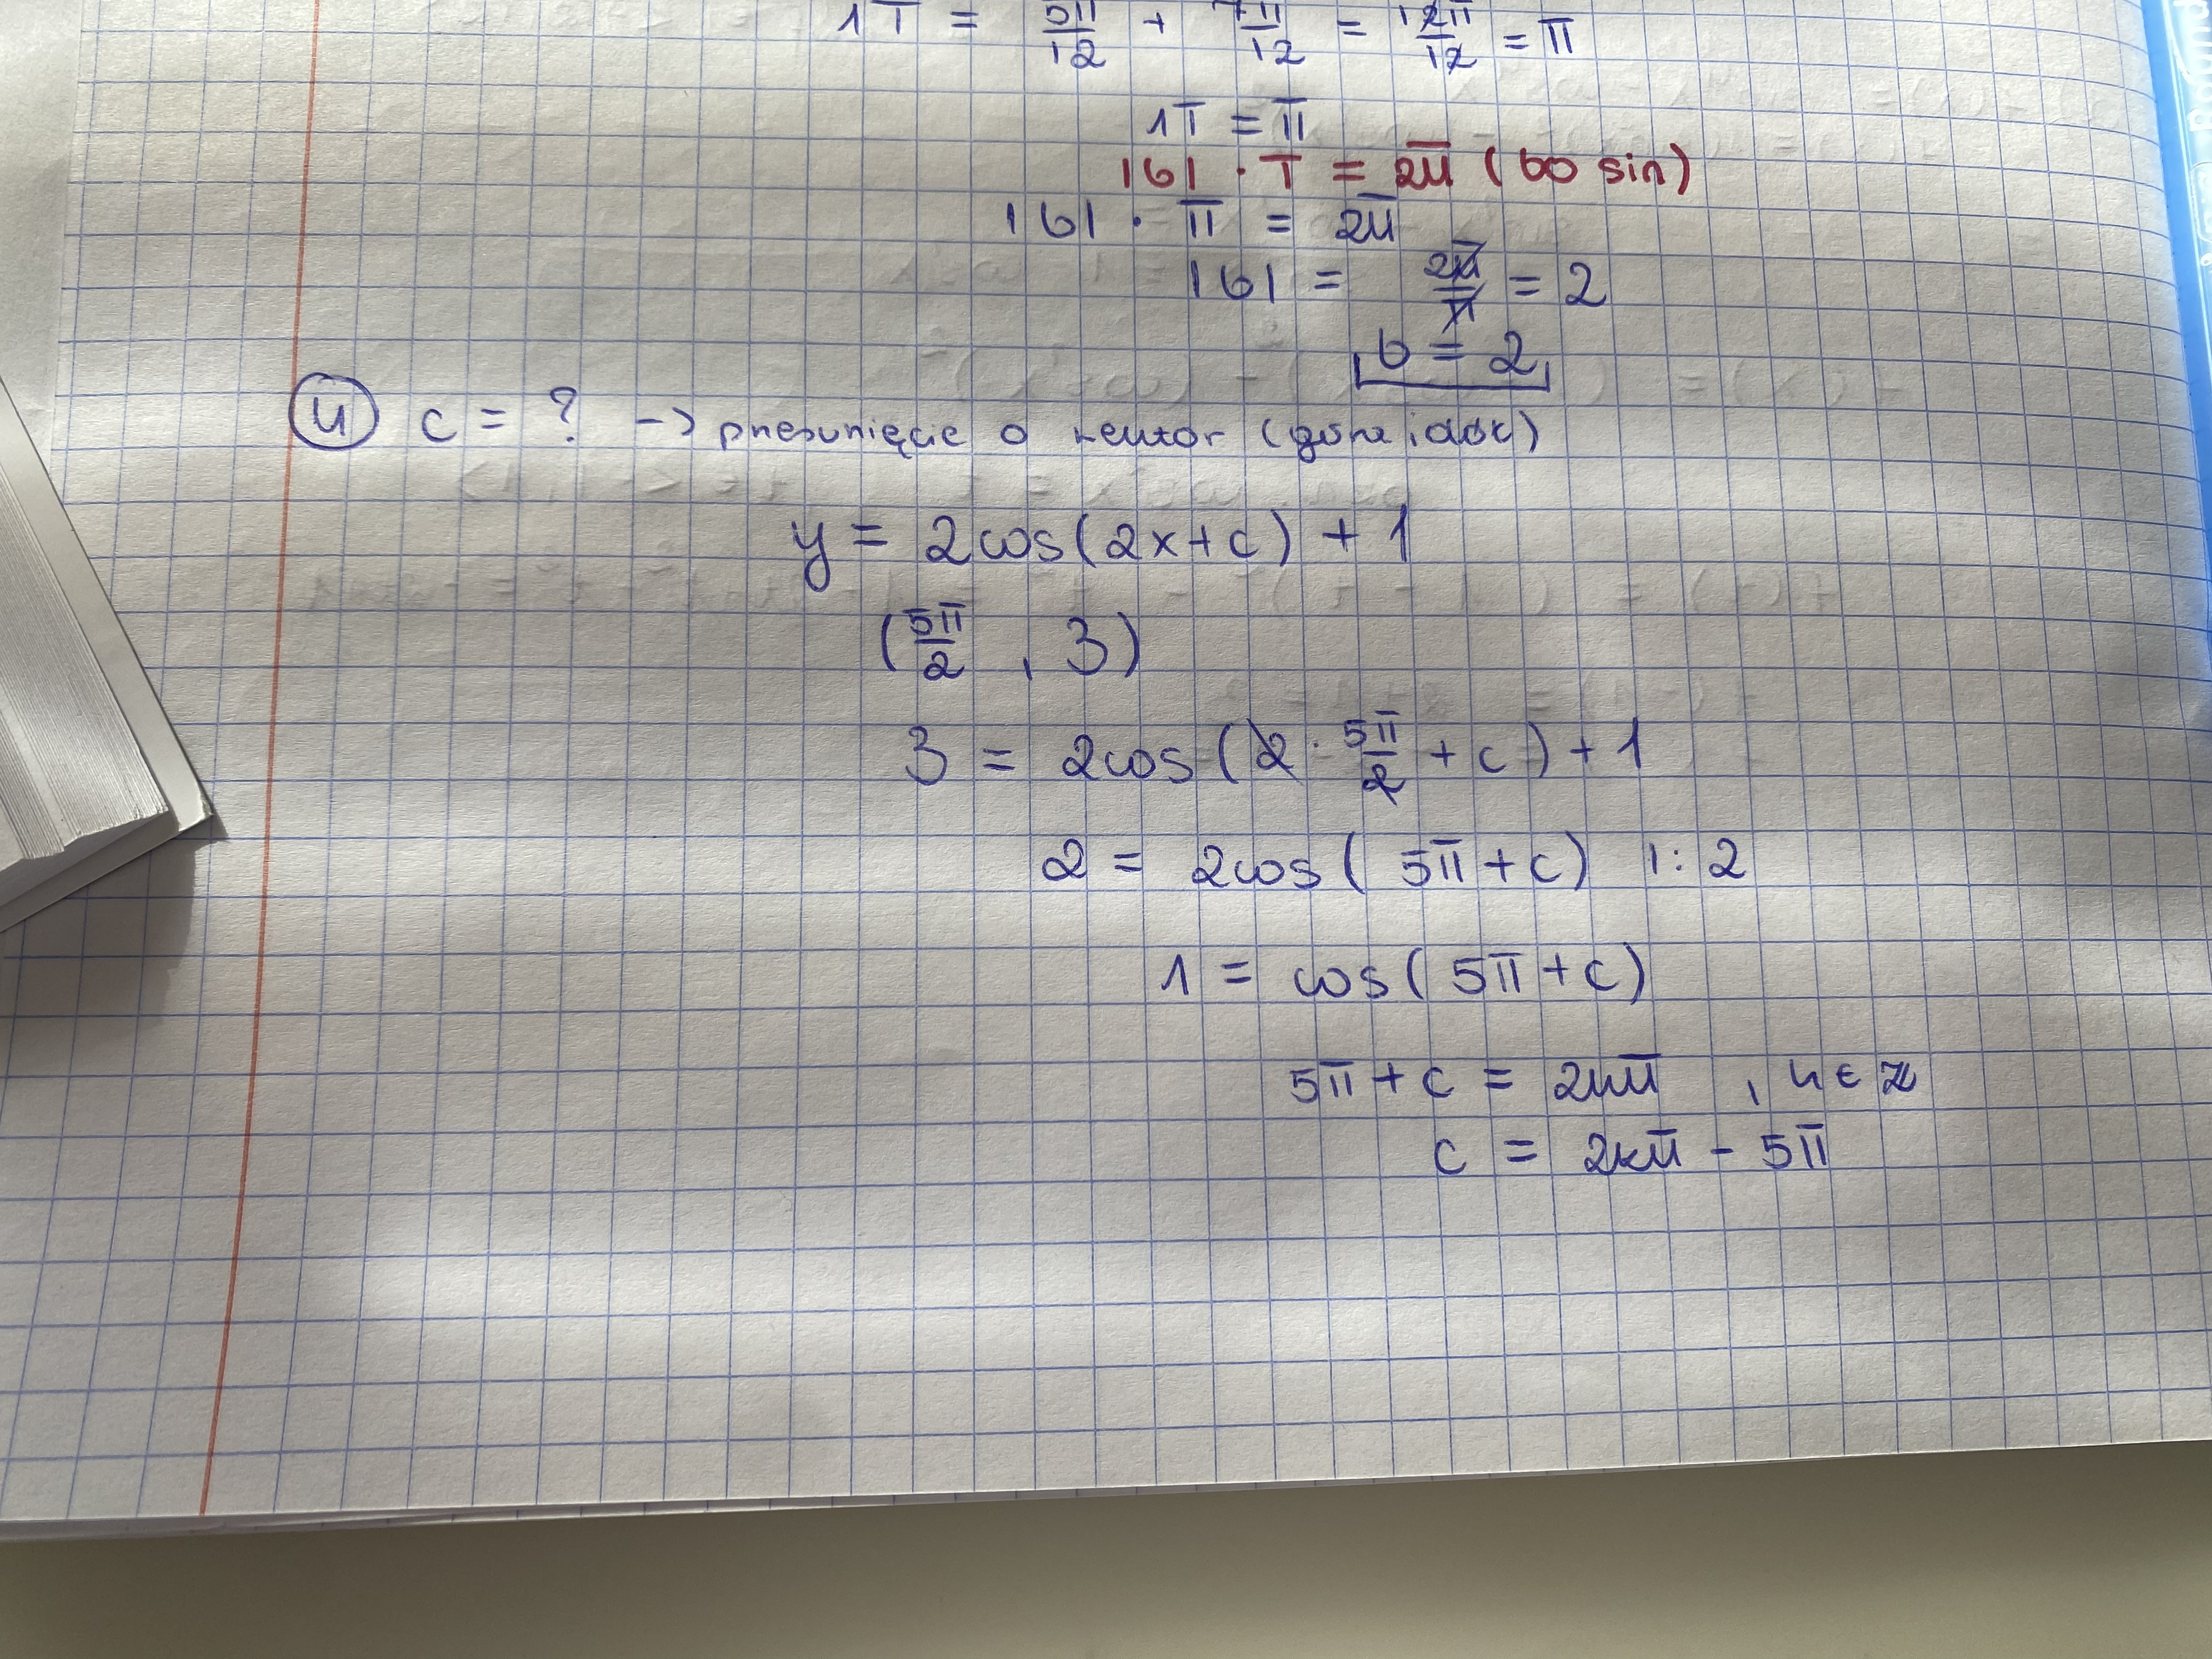 1T = 5π/12 + 7π/12 = 12π/12 = π
1T = π
|b| · T = 2π (bo sin)
|b| · π = 2π
|b| = 2π/π = 2
b = 2
4 c = ? -> przesunięcie o wektor (góra i dół)
y = 2cos(2x+c) + 1
(5π/2 , 3)
3 = 2cos(2 · 5π/2 + c) + 1
2 = 2cos( 5π + c) |: 2
1 = cos( 5π + c)
5π + c = 2kπ , k ∈ ℤ
c = 2kπ - 5π